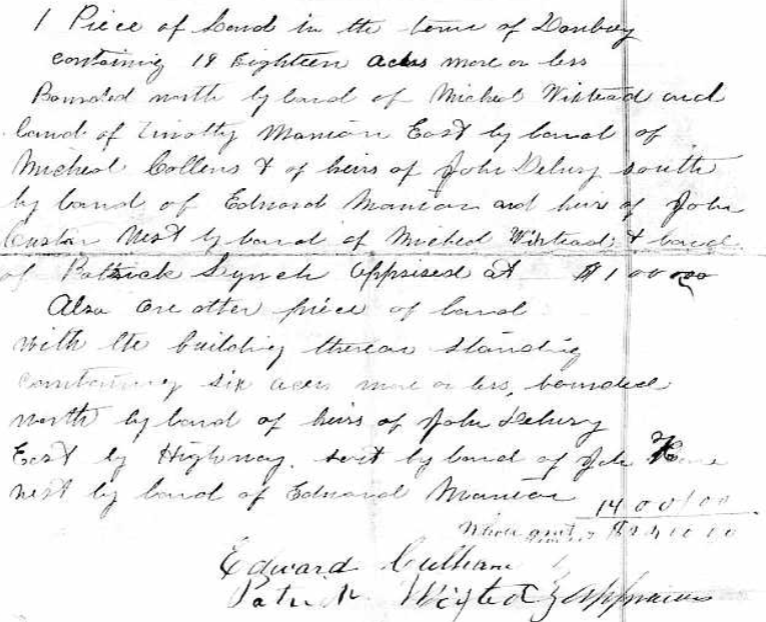 1 Piece of Land in the town of Danbury
containing 18 Eighteen acres more or less
Bounded north by land of Micheal Wixtead and
land of Timothy Manion East by land of
Micheal Collens & of heirs of John Delury south
by land of Edward Manion and heirs of John
West by land of Micheal Wixtead & land
of Patrick Lynch appraised at $100 00
Also one other piece of land
with the building thereon standing
containing six acers more or less, bounded
north by land of heirs of John Delury
East by Highway. by land of
west by land of Edward Manion 1400/00
Edward
Patrick Wixted } appraisers